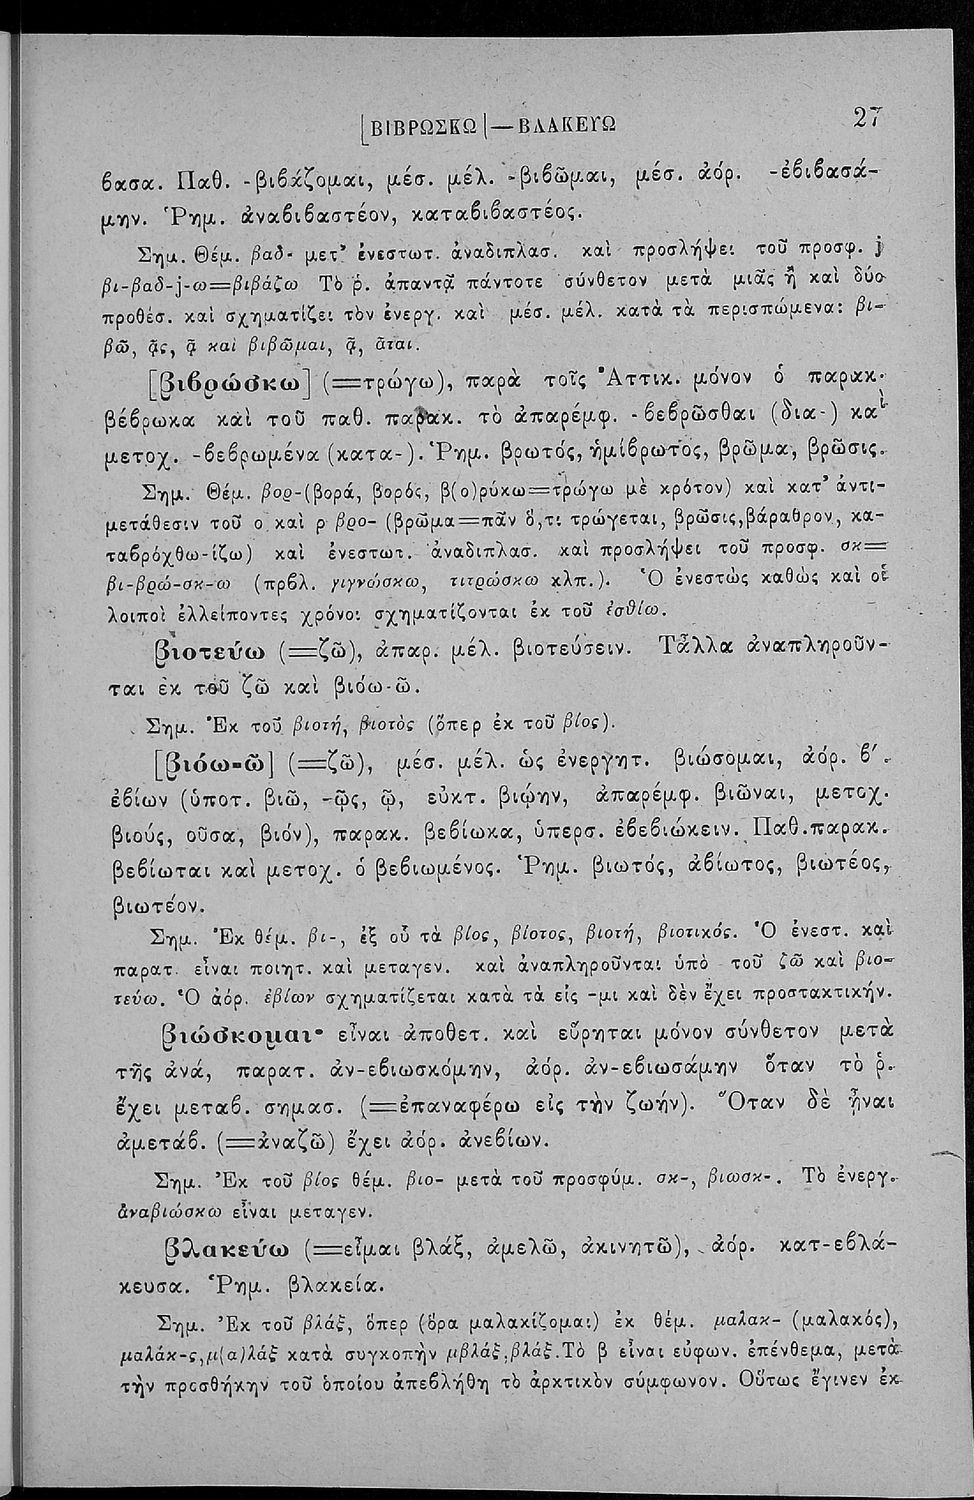 [ΒΙΒΡΩΣΚΩ]—ΒΛΑΚΕΥΩ 27
βασα. Παθ. -βιβάζομαι, μέσ. μέλ. -βιβῶμαι, μέσ. ἀόρ. -ἐβιβασά-
μην. Ῥημ. ἀναβιβαστέον, καταβιβαστέος.
Σημ. Θέμ. βαδ- μετ' ἐνεστωτ. ἀναδιπλασ. καὶ προσλήψει τοῦ προσφ. j
βι-βαδ-j-ω=βιβάζω Τὸ ῥ. ἀπαντᾷ πάντοτε σύνθετον μετὰ μιᾶς ἢ καὶ δύο
προθέσ. καὶ σχηματίζει τὸν ἐνεργ. καὶ μέσ. μέλ. κατὰ τὰ περισπώμενα: βι-
βῶ, ᾷς, ᾷ καὶ βιβῶμαι, ᾷ, ᾶται.
[βιβρώσκω] (=τρώγω), παρὰ τοῖς Ἀττικ. μόνον ὁ παρακ.
βέβρωκα καὶ τοῦ παθ. παρακ. τὸ ἀπαρέμφ. -βεβρῶσθαι (δια-) καὶ
μετοχ. -βεβρωμένα (κατα-). Ῥημ. βρωτός, ἡμίβρωτος, βρῶμα, βρῶσις.
Σημ. Θέμ. βορ-(βορά, βορός, β(ο)ρύκω=τρώγω μὲ κρότον) καὶ κατ' ἀντι-
μετάθεσιν τοῦ ο καὶ ρ βρο- (βρῶμα=πᾶν ὅ,τι τρώγεται, βρῶσις, βάραθρον, κα-
ταβρόχθω-ίζω) καὶ ἐνεστωτ. ἀναδιπλασ. καὶ προσλήψει τοῦ προσφ. σκ=
βι-βρώ-σκ-ω (πρβλ. γιγνώσκω, τιτρώσκω κλπ.). Ὁ ἐνεστὼς καθὼς καὶ οἱ
λοιποὶ ἐλλείποντες χρόνοι σχηματίζονται ἐκ τοῦ ἐσθίω.
βιοτεύω (=ζῶ), ἀπαρ. μέλ. βιοτεύσειν. Τἆλλα ἀναπληροῦν-
ται ἐκ τοῦ ζῶ καὶ βιόω-ῶ.
Σημ. Ἐκ τοῦ βιοτή, βιοτὸς (ὅπερ ἐκ τοῦ βίος).
[βιόω-ῶ] (=ζῶ), μέσ. μέλ. ὡς ἐνεργητ. βιώσομαι, ἀόρ. β΄.
ἐβίων (ὑποτ. βιῶ, -ῷς, ῷ, εὐκτ. βιῴην, ἀπαρέμφ. βιῶναι, μετοχ.
βιούς, οῦσα, βιόν), παρακ. βεβίωκα, ὑπερσ. ἐβεβιώκειν. Παθ.παρακ.
βεβίωται καὶ μετοχ. ὁ βεβιωμένος. Ῥημ. βιωτός, ἀβίωτος, βιωτέος,
βιωτέον.
Σημ. Ἐκ θέμ. βι-, ἐξ οὗ τὰ βίος, βίοτος, βιοτή, βιοτικός. Ὁ ἐνεστ. καὶ
παρατ. εἶναι ποιητ. καὶ μεταγεν. καὶ ἀναπληροῦνται ὑπὸ τοῦ ζῶ καὶ βιο-
τεύω. Ὁ ἀόρ. ἐβίων σχηματίζεται κατὰ τὰ εἰς -μι καὶ δὲν ἔχει προστακτικήν.
βιώσκομαι· εἶναι ἀποθετ. καὶ εὕρηται μόνον σύνθετον μετὰ
τῆς ἀνά, παρατ. ἀν-εβιωσκόμην, ἀόρ. ἀν-εβιωσάμην ὅταν τὸ ῥ.
ἔχει μεταβ. σημασ. (=ἐπαναφέρω εἰς τὴν ζωήν). Ὅταν δὲ ᾖναι
ἀμετάβ. (=ἀναζῶ) ἔχει ἀόρ. ἀνεβίων.
Σημ. Ἐκ τοῦ βίος θέμ. βιο- μετὰ τοῦ προσφύμ. σκ-, βιωσκ-. Τὸ ἐνεργ.
ἀναβιώσκω εἶναι μεταγεν.
βλακεύω (=εἶμαι βλάξ, ἀμελῶ, ἀκινητῶ), ἀόρ. κατ-εβλά-
κευσα. Ῥημ. βλακεία.
Σημ. Ἐκ τοῦ βλάξ, ὅπερ (ὅρα μαλακίζομαι) ἐκ θέμ. μαλακ- (μαλακός),
μαλάκ-ς,μ(α)λάξ κατὰ συγκοπὴν μβλάξ,βλάξ.Τὸ β εἶναι εὐφων. ἐπένθεμα, μετὰ
τὴν προσθήκην τοῦ ὁποίου ἀπεβλήθη τὸ ἀρκτικὸν σύμφωνον. Οὕτως ἔγινεν ἐκ